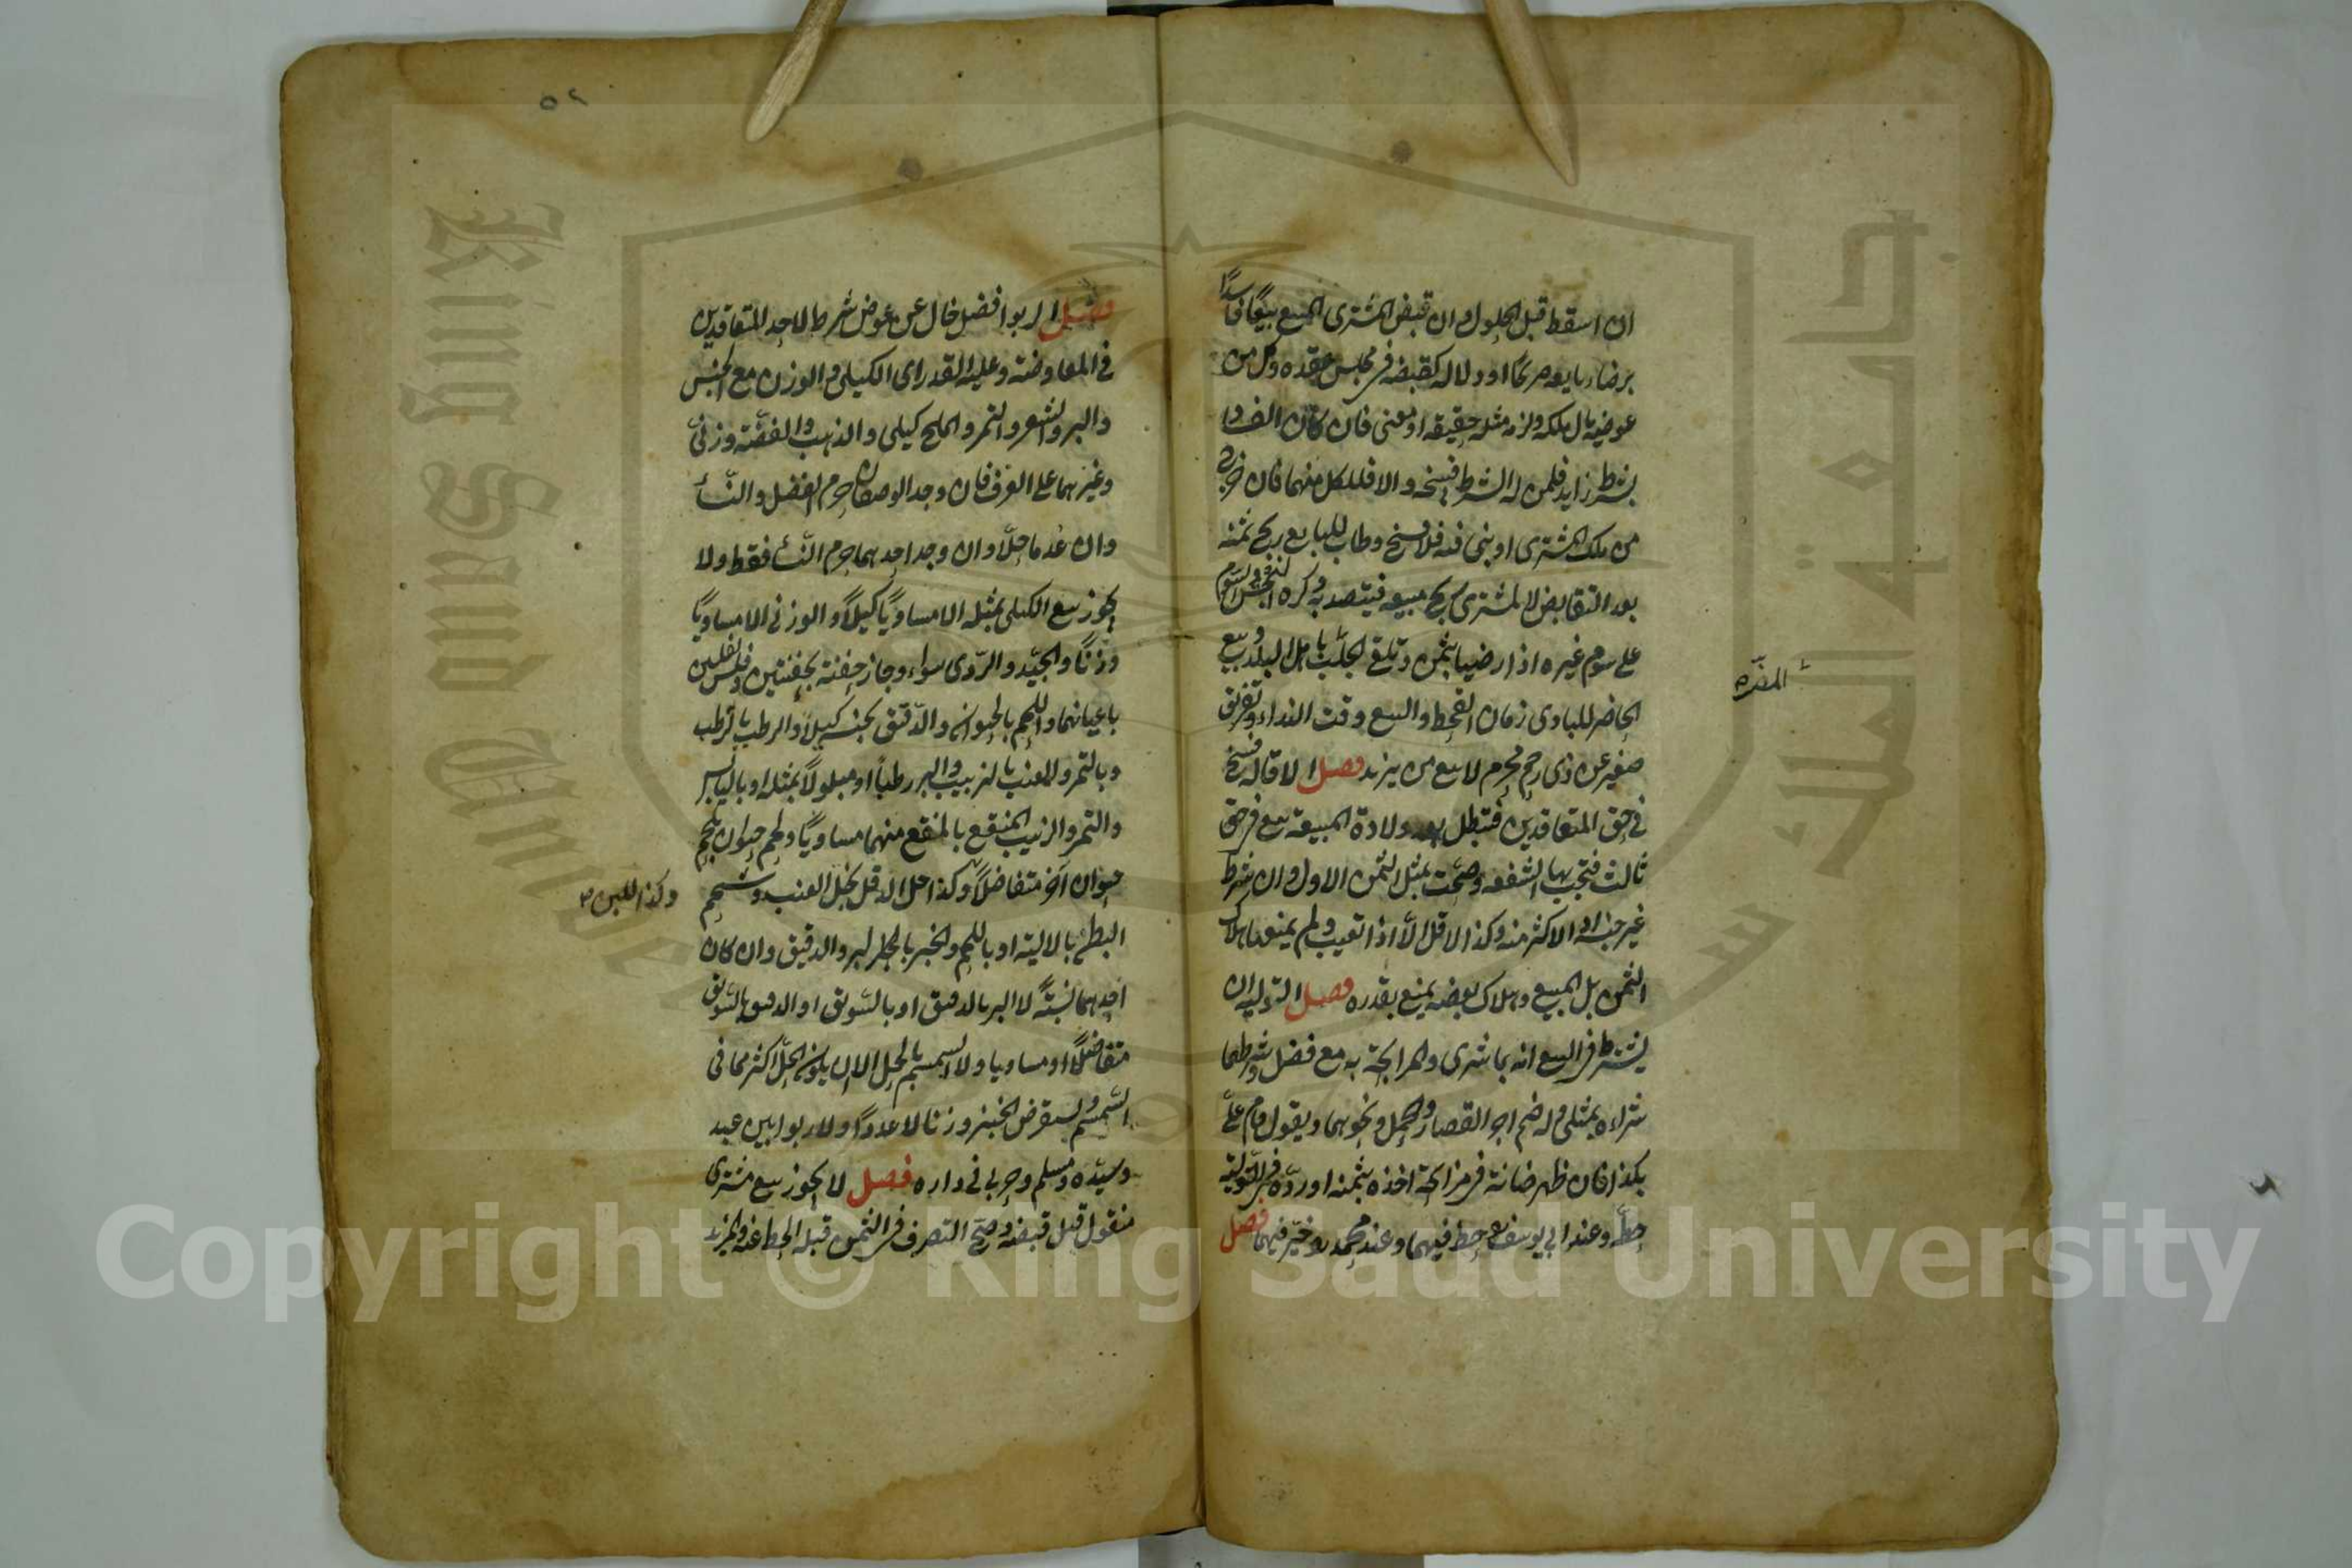 ان اسقط قبل الحلول وان قبض المشترى المبيع بيعًا فاسدًا
برضاء بايعه صريحًا او دلالة كقبضه فى مجلس عقده وكل من
عوضيه مال ملكه ولزمه مثله حقيقة او معنى فان كان الفساد
بشرط زايد فلمن له الشرط فسخه والا فلكل منهما فان خرج
من ملك المشترى او بنى فيه فلا فسخ وطاب للبايع ربح ثمنه
بعد التقابض لا لمشترى ربح مبيعه فيتصدق به وكره النجش والسوم
على سوم غيره اذا رضيا بثمن وتلقى الجلب باهل البلد وبيع
المضرة
الحاضر للبادى زمان القحط والبيع وقت النداء وتفريق
صغير عن ذى رحم محرم لا بيع من يزيد فصل الاقالة فسخ
فى حق المتعاقدين فتبطل بعد ولادة المبيعة بيع فى حق
ثالث فتجب بها الشفعة وصحت بمثل الثمن الاول وان شرط
غير جنسه او الاكثر منه وكذا الاقل الا اذا تعيب ولم يمنعها هلاك
الثمن بل المبيع وهلاك بعضه يمنع بقدره فصل التولية ان
يشترط فى البيع انه بما شرى والمرابحة به مع فضل وشرطهما
شراءه بمثلى وله ضم اجر القصار والحمل ونحوهما ويقول قام على
بكذا فان ظهر خيانة فى مرابحة اخذه بثمنه او رده وفى التولية
حط وعند ابى يوسف حط فيهما وعند محمد خير فيهما فصل
٥٢
فصل الربوا فضل خال عن عوض شرط لاحد المتعاقدين
فى المعاوضة وعليه القدر اى الكيلى والوزن مع الجنس
والبر والشعير والتمر والملح كيلى والذهب والفضة وزنى
وغيرهما على العرف فان وجد الوصفان حرم الفضل والنسأ
وان عدما حلا وان وجد احدهما حرم النسأ فقط ولا
يجوز بيع الكيلى بمثله الا مساويًا كيلًا والوزنى الا مساويًا
وزنًا والجيد والردى سواء وجاز حفنة بحفنتين وفلس بفلسين
باعيانهما واللحم بالحيوان والدقيق بجنسه كيلًا والرطب بالرطب
وبالتمر والعنب بالزبيب والبر رطبًا او مبلولًا بمثله او باليابس
والتمر والزبيب المنقع بالمنقع منهما مساويًا ولحم حيوان بلحم
حيوان آخر متفاضلًا وكذا خل الدقل بخل العنب وشحم
وكذا اللبن صح
البطن بالالية او باللحم والخبز بالبر والدقيق وان كان
احدهما نسيئةً لا البر بالدقيق او بالسويق او الدقيق بالسويق
متفاضلًا او مساويا ولا السمسم بالحل الا ان يكون الحل اكثر مما فى
السمسم ويستقرض الخبز وزنا لا عددًا ولا ربوا بين عبد
وسيده ومسلم وحربى فى داره فصل لا يجوز بيع مشترى
منقول قبل قبضه وصح التصرف فى الثمن قبله الحط عنه والمزيد
Copyright © King Saud University
King Saud University